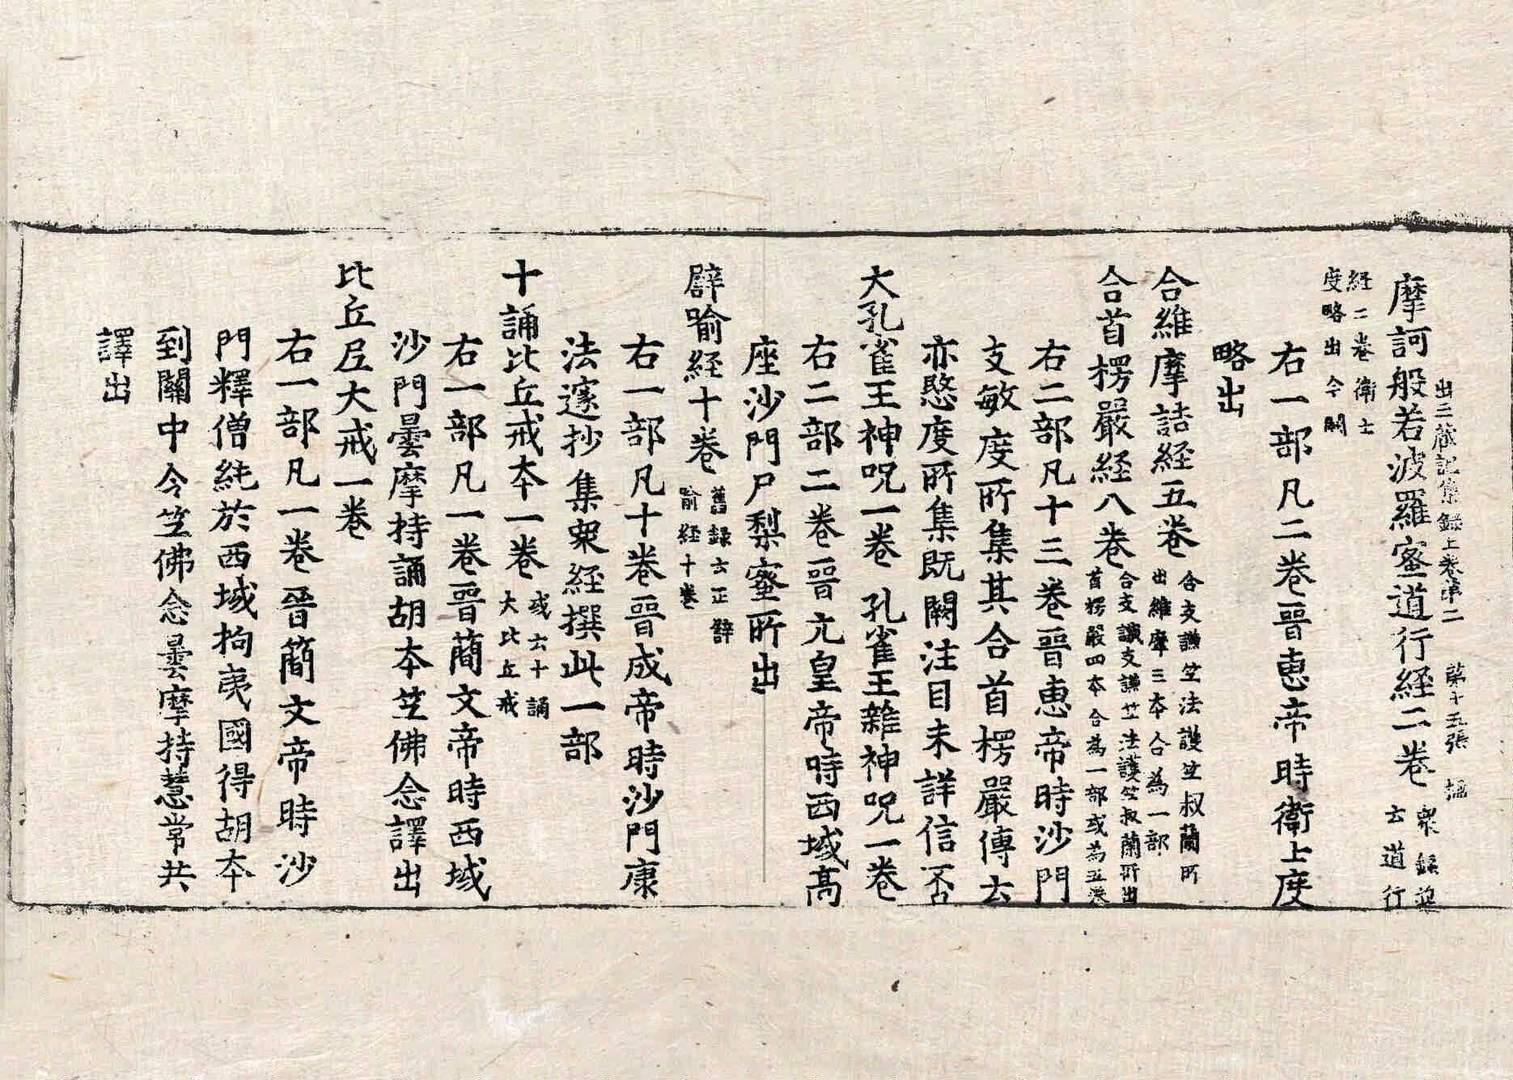 出三藏記集錄上卷第二 第十五張
摩訶般若波羅蜜道行經二卷 衆錄並云道行
經二卷衛士度略出今闕
右一部凡二卷晉惠帝時衛士度
略出
合維摩詰經五卷 合支謙竺法護竺叔蘭所出維摩三本合為一部
合首楞嚴經八卷 合支讖支謙竺法護竺叔蘭所出首楞嚴四本合為一部或為五卷
右二部凡十三卷晉惠帝時沙門
支敏度所集其合首楞嚴傳云
亦愍度所集既闕注目未詳信否
大孔雀王神呪一卷 孔雀王雜神呪一卷
右二部二卷晉元皇帝時西域高
座沙門尸梨蜜所出
辟喻經十卷 舊錄云正辟喻經十卷
右一部凡十卷晉成帝時沙門康
法邃抄集衆經撰此一部
十誦比丘戒本一卷 或云十誦大比丘戒
右一部凡一卷晉蕳文帝時西域
沙門曇摩持誦胡本竺佛念譯出
比丘尼大戒一卷
右一部凡一卷晉簡文帝時沙
門釋僧純於西域拘夷國得胡本
到關中令竺佛念曇摩持慧常共
譯出